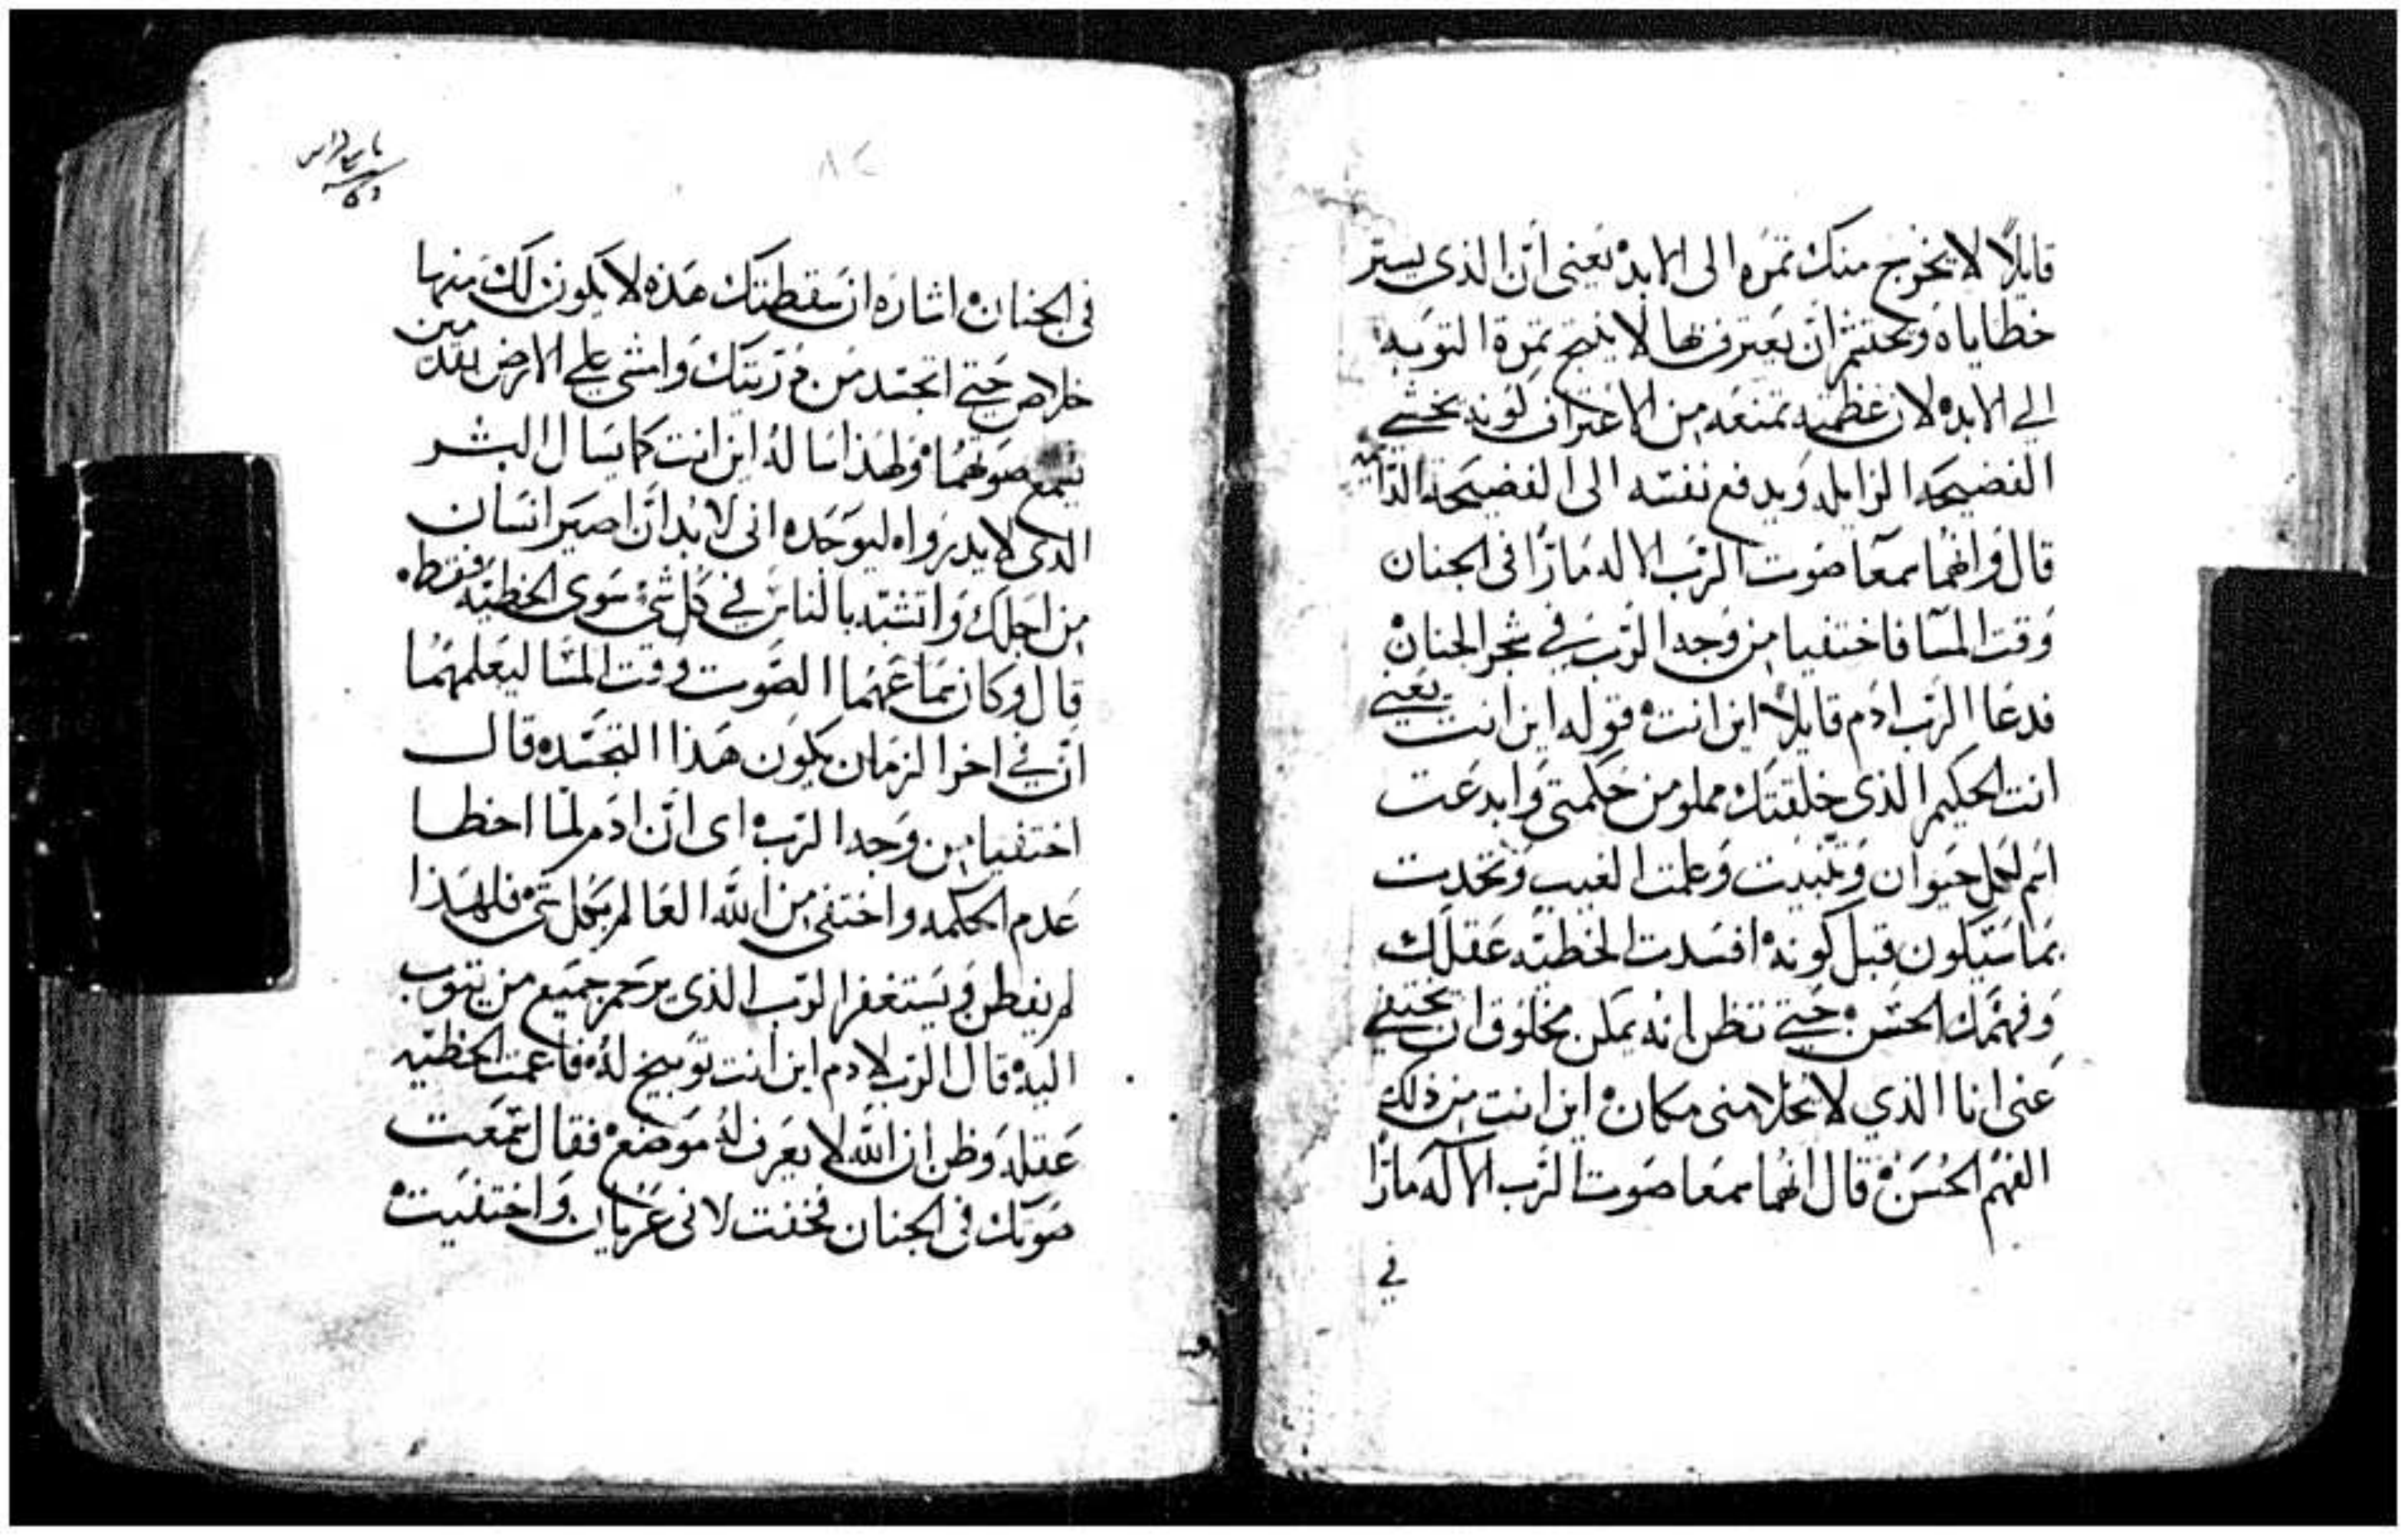 قايلاً لا يخرج منك ثمره الى الابد يعنى ان الذى يستر
خطاياه ويحتشم ان يعترف بها لا ينتج ثمرة التوبه
الي الابد لان عظمته تمنعه من الاعتراف لونه يخشي
الفضيحه الزايله ويدفع نفسه الى الفضيحه الدايمه
قال وانهما سمعا صوت الرب الاله مارًا فى الجنان
وقت المسا فاختفيا من وجه الرب في شجر الجنان
فدعا الرب ادم قايلاً اين انت قوله اين انت يعني
انت الحكيم الذى خلقتك مملو من حكمتى وابدعت
اسم لكل حيوان وتنبيت وعلمت الغيب وتحدت
بما سيكون قبل كونه افسدت الخطيه عقلك
وفهمك الحسن حتي تظن انه يمكن مخلوق ان يختفي
عنى انا الذي لا يخلا منى مكان اين انت من ذلك
الفهم الحسن قال انهما سمعا صوت الرب الاله مارًا
في
٨٢
فى الجنان اشاره ان سقطتك هذه لا يكون لك منها
خلاص حتي اتجسد من ذريتك وامشي علي الارض من
يسمع صوتهما ولهذا ساله اين انت كما يسال البشر
الذى لا يدرواه ليوجده انى لا بد ان اصير انسان
من اجلك واتشبه بالناس في كل شي سوى الخطيه فقط
قال وكان سماعهما الصوت وقت المسا ليعلمهما
ان في اخر الزمان يكون هذا التجسد قال
اختفيا من وجه الرب اى ان ادم لما اخطا
عدم الحكمه واختفى من الله العالم بكل شي فلهذا
لم يفطن ويستغفر الرب الذى يرحم جميع من يتوب
اليه قال الرب لادم اين انت توبيخ له فاعمت الخطيه
عقله وظن ان الله لا يعرف له موضع فقال سمعت
صوتك فى الجنان فخفت لانى عريان واختفيت